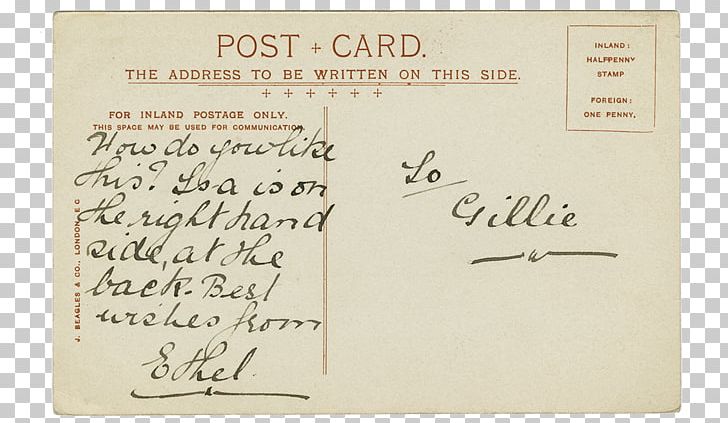 POST + CARD.
THE ADDRESS TO BE WRITTEN ON THIS SIDE.
INLAND:
HALFPENNY
STAMP
FOREIGN:
ONE PENNY.
FOR INLAND POSTAGE ONLY.
THIS SPACE MAY BE USED FOR COMMUNICATION.
How do you like
this? Isa is on
the right hand
side, at the
back. Best
wishes from
Ethel.
To
Gillie
J. BEAGLES & CO., LONDON, E.C